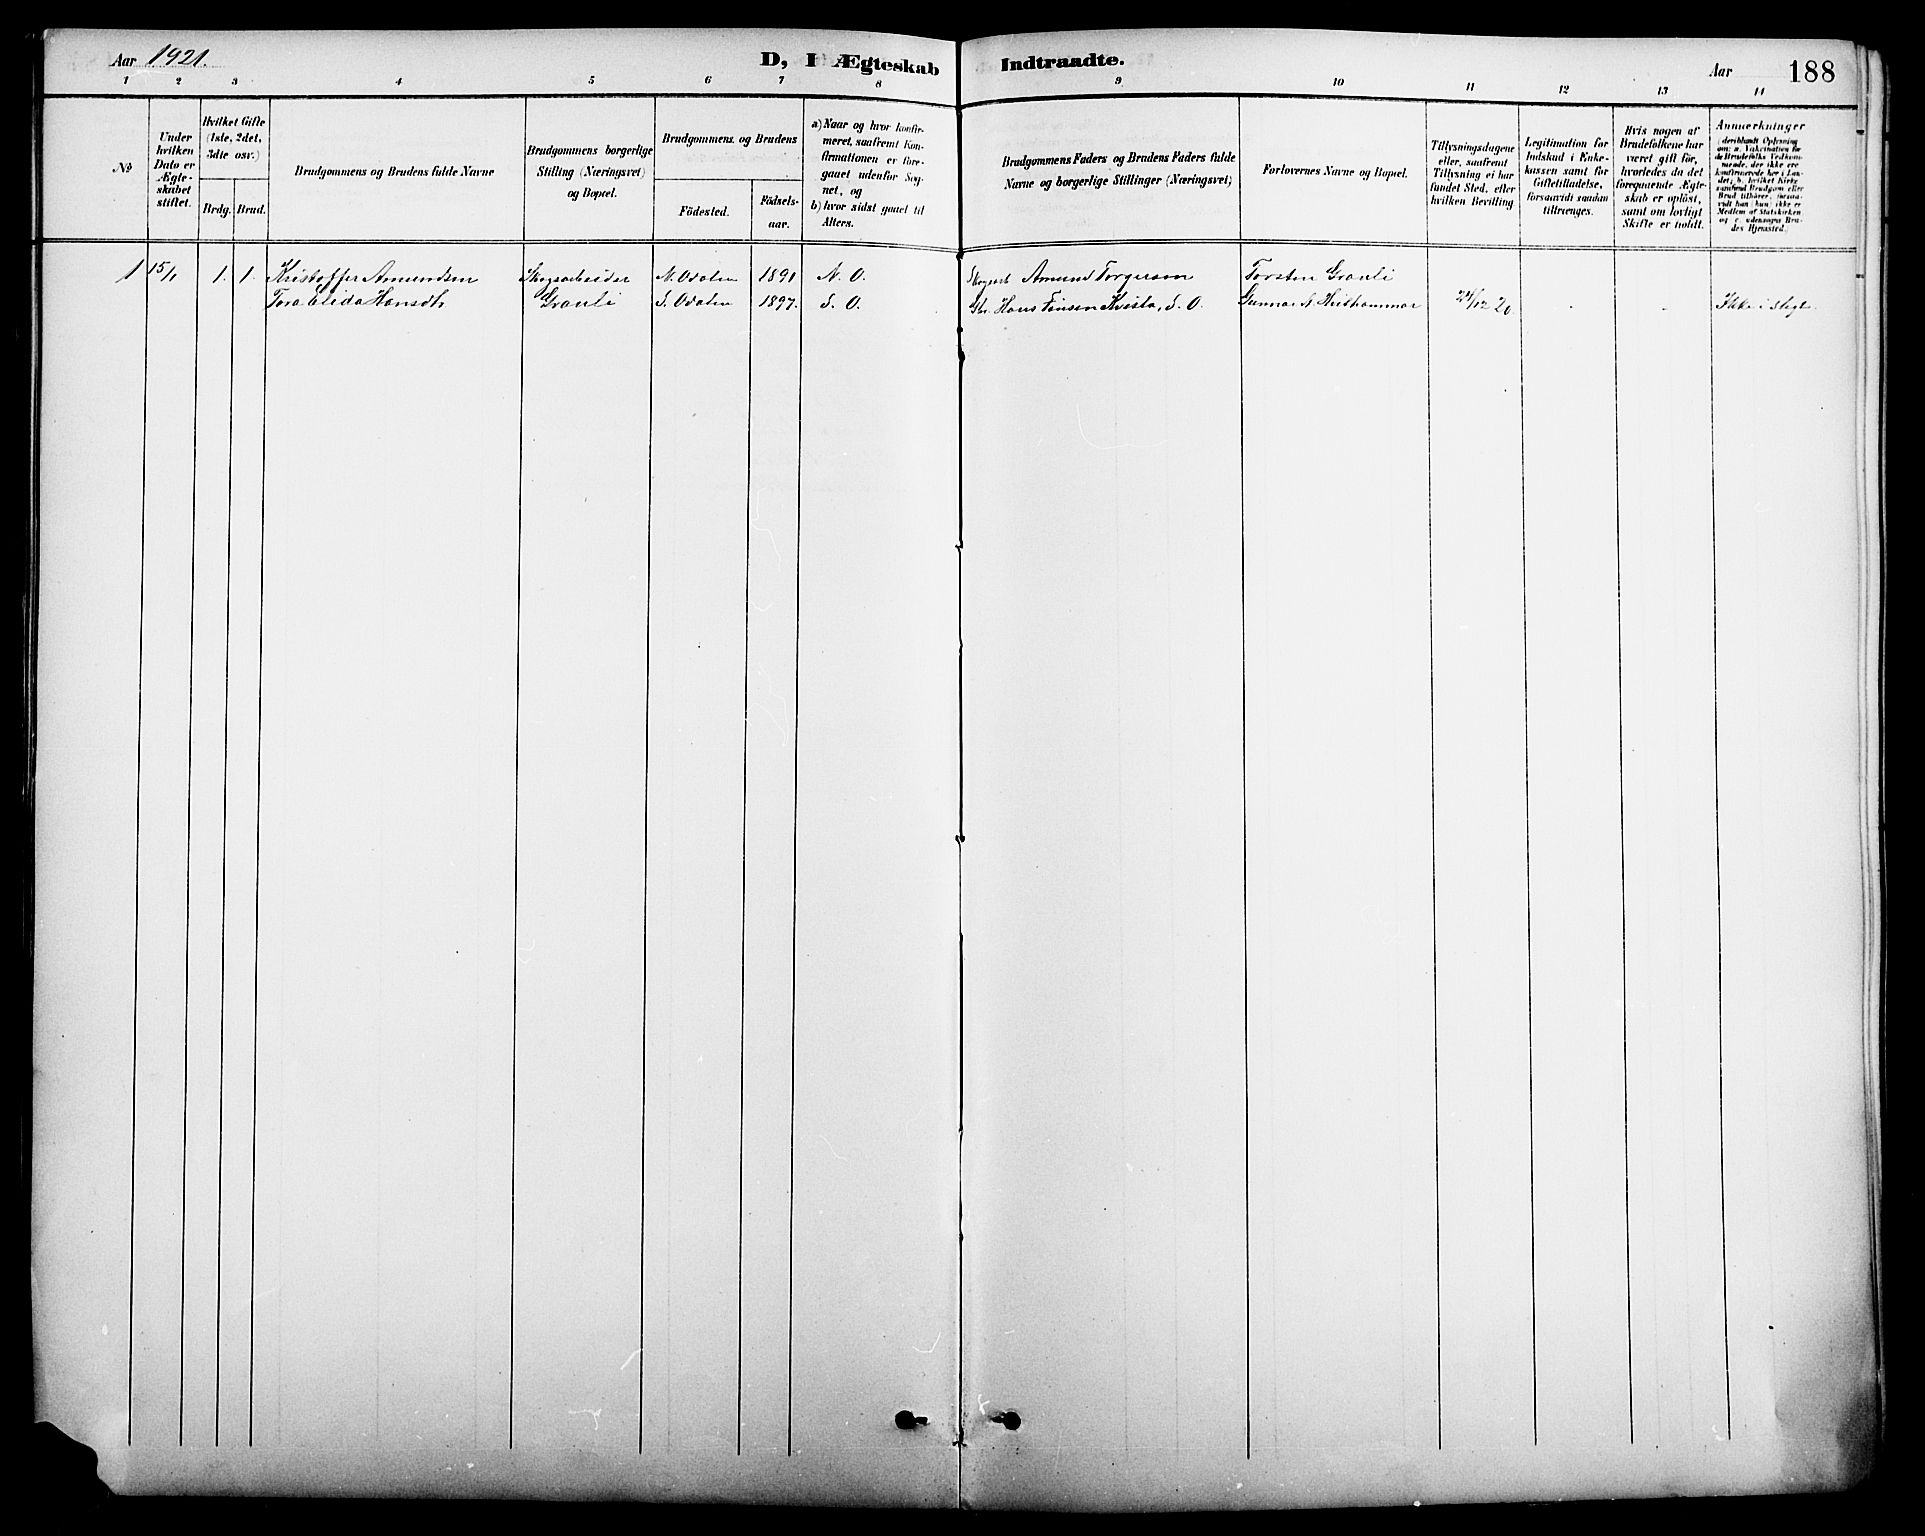 Aar 1921.
D, I Ægteskab Indtraadte.
Aar
188
1 2 3 4 5 6 7 8 9 10 11 12 13 14
№
Under
hvilken
Dato er
Ægte-
skabet
stiftet.
Hvilket Gifte
(1ste, 2det,
3die osv.)
Brdg. Brud.
Brudgommens og Brudens fulde Navne
Brudgommens borgerlige
Stilling (Næringsvei)
og Bopæl.
Brudgommens og Brudens
Födested.
Födsels-
aar.
a) Naar og hvor konfir-
meret, saafremt Kon-
firmationen er fore-
gaaet udenfor Sog-
net, og
b) hvor sidst gaaet til
Alters.
Brudgommens Faders og Brudens Faders fulde
Navne og borgerlige Stillinger (Næringsvei)
Forlovernes Navne og Bopæl.
Tillysningsdagene
eller, saafremt
Tillysning ei har
fundet Sted, efter
hvilken Bevilling
Legitimation for
Indskud i Enke-
kassen samt for
Giftetilladelse,
forsaavidt saadan
tiltrænges.
Hvis nogen af
Brudefolkene har
været gift för,
hvorledes da det
foregaaende Ægte-
skab er oplöst,
samt om lovligt
Skifte er holdt.
Anmerkninger
(deriblandt Oplysning
om: a. Vakcination for
de Brudefolks Vedkom-
mende, der ikke ere
konfirmerede her i Lan-
det; b. hvilket Kirke-
samfund Brudgom eller
Brud tilhörer, forsaa-
vidt han (hun) ikke er
Medlem af Statskirken
og c. udensogns Bru-
des Hjemsted.)
1 15/1 1. 1. Kristoffer Amundsen Skogsarbeider N. Odalen 1891 N. O. Amund Torgersen Torsten Granli
Tora Elida Hansdtr Granli S. Odalen 1897. S. O. Hans Finsen Kvista, S. O. Gunnar 24/12 20. - - Ikke i slegt.